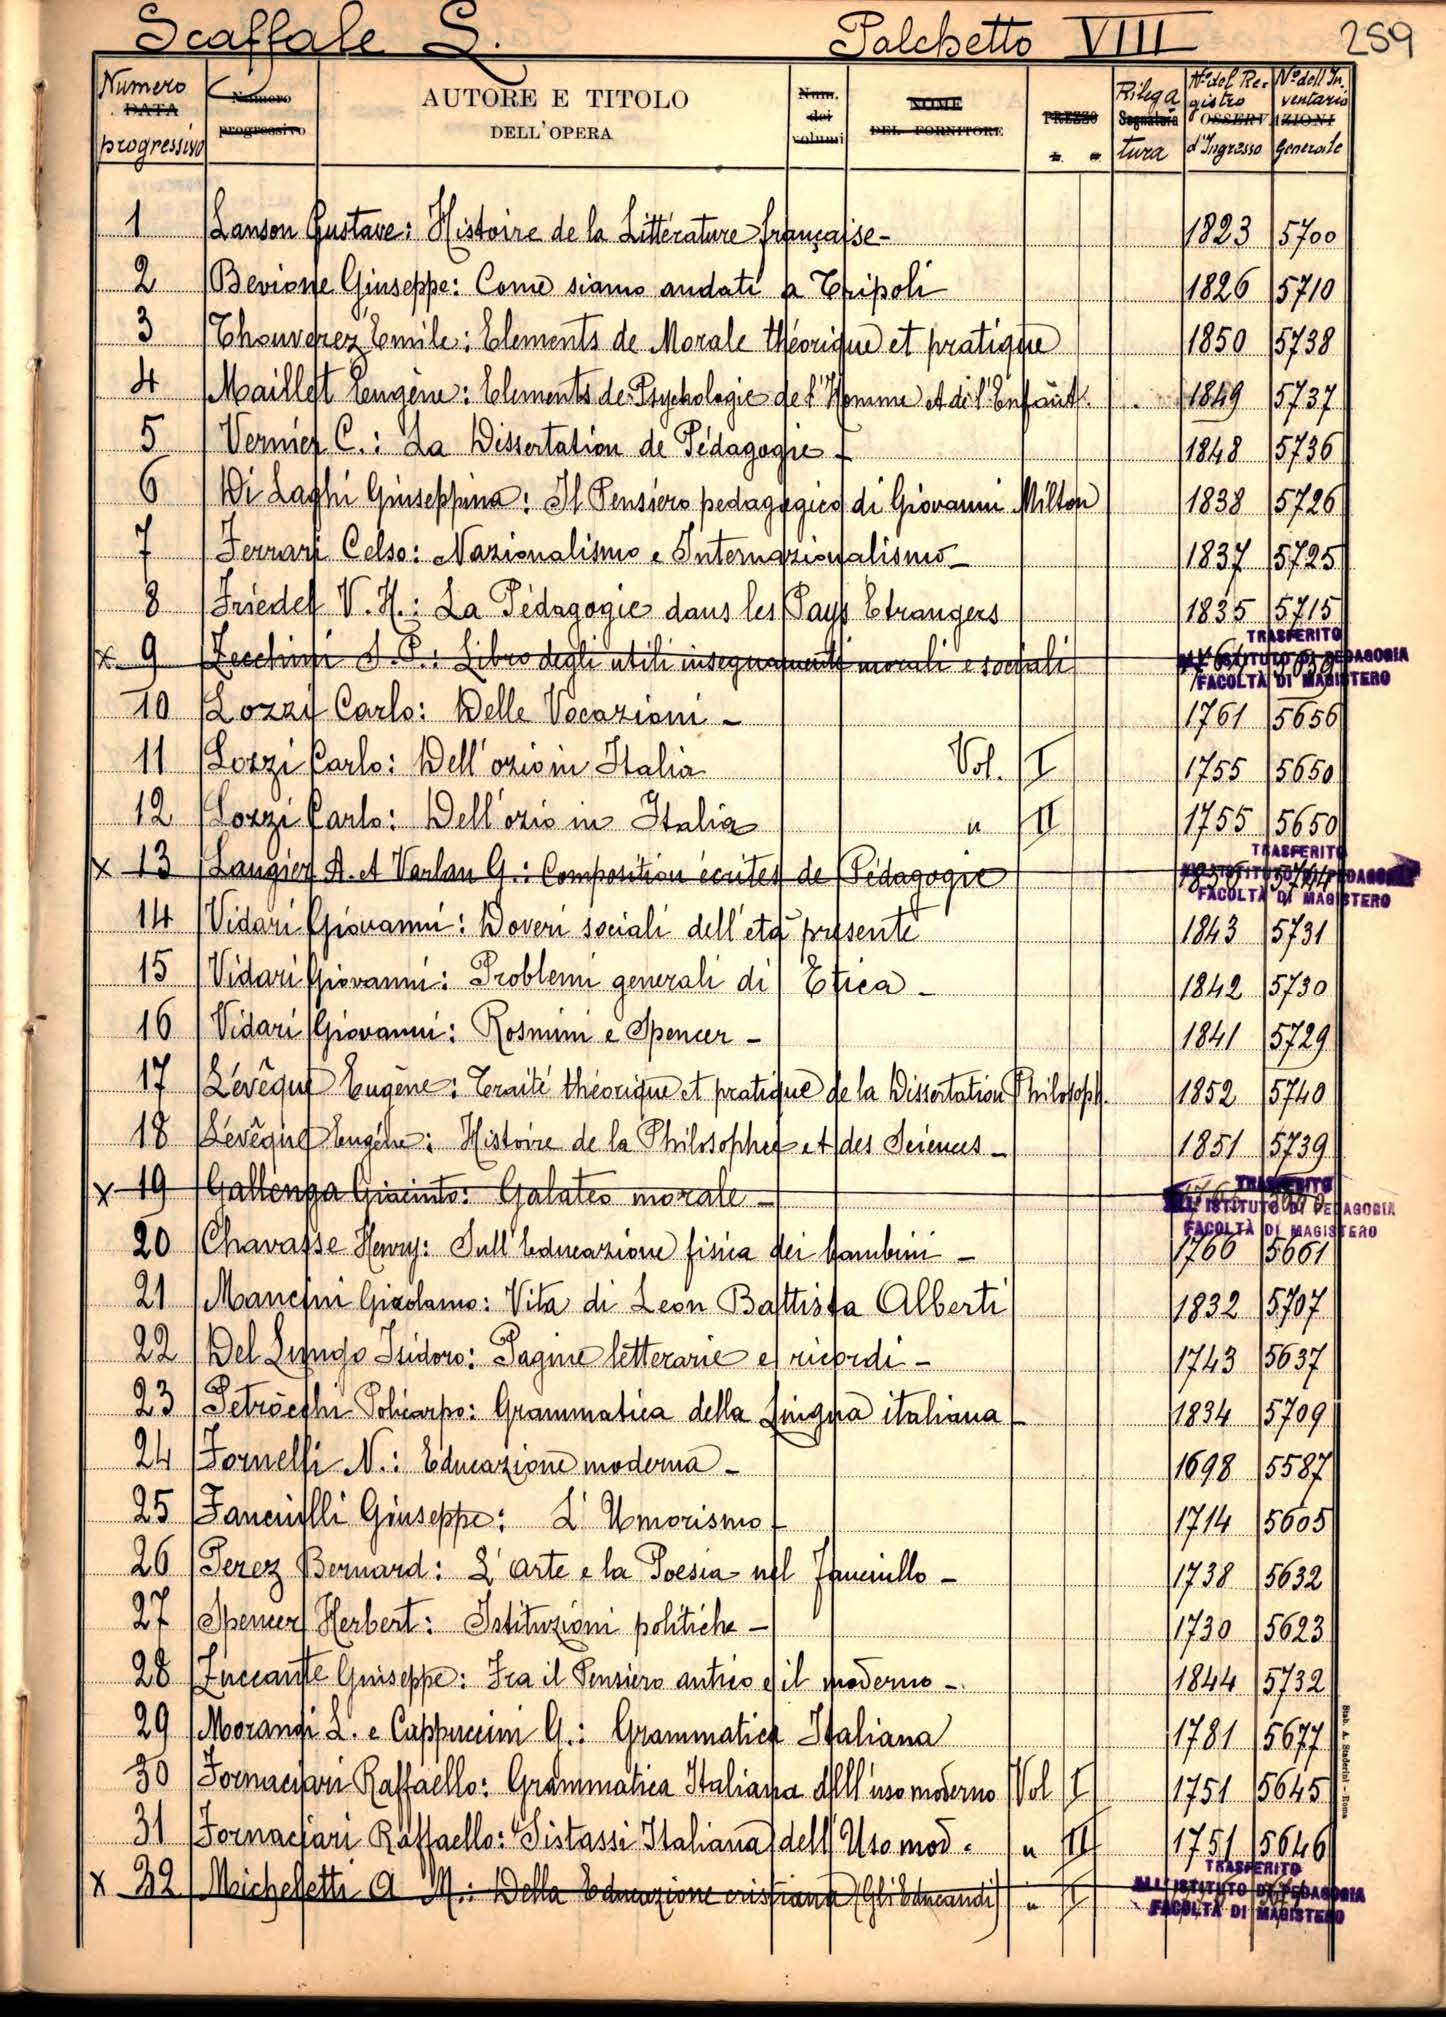 Scaffale L. Palchetto VIII 259
Numero DATA progressivo Numero progressivo AUTORE E TITOLO DELL'OPERA Num. dei volumi NOME DEL FORNITORE PREZZO Rilega Segnatura tura N.º del Registro OSSERVAZIONI d'Ingresso N.º dell'Inventario Generale
1 Lanson Gustave: Histoire de la Littérature française - 1823 5700
2 Bevione Giuseppe: Come siamo andati a Tripoli 1826 5710
3 Thouverez Emile: Elements de Morale théorique et pratique 1850 5738
4 Maillet Eugène: Elements de Psychologie de l'Homme et de l'Enfant. 1849 5737
5 Vernier C.: La Dissertation de Pédagogie - 1848 5736
6 Di Laghi Giuseppina: Il Pensiero pedagogico di Giovanni Milton 1838 5726
7 Ferrari Celso: Nazionalismo e Internazionalismo - 1837 5725
8 Friedel V. H.: La Pédagogie dans les Pays Etrangers 1835 5715
x 9 Zecchini S. P.: Libro degli utili insegnamenti morali e sociali TRASFERITO ALL'ISTITUTO DI PEDAGOGIA FACOLTÀ DI MAGISTERO
10 Lozzi Carlo: Delle Vocazioni - 1761 5656
11 Lozzi Carlo: Dell'ozio in Italia Vol. I 1755 5650
12 Lozzi Carlo: Dell'ozio in Italia " II 1755 5650
x 13 Laugier A. et Varlan G.: Composition écrites de Pédagogie TRASFERITO ALL'ISTITUTO DI PEDAGOGIA FACOLTÀ DI MAGISTERO
14 Vidari Giovanni: Doveri sociali dell'età presente 1843 5731
15 Vidari Giovanni: Problemi generali di Etica - 1842 5730
16 Vidari Giovanni: Rosmini e Spencer - 1841 5729
17 Lévêque Eugène: Traité théorique et pratique de la Dissertation Philosoph. 1852 5740
18 Lévêque Eugène: Histoire de la Philosophie et des Sciences - 1851 5739
x 19 Gallenga Giacinto: Galateo morale - TRASFERITO ALL'ISTITUTO DI PEDAGOGIA FACOLTÀ DI MAGISTERO
20 Chavasse Henry: Sull'Educazione fisica dei bambini - 1766 5661
21 Mancini Girolamo: Vita di Leon Battista Alberti 1832 5707
22 Del Lungo Isidoro: Pagine letterarie e ricordi - 1743 5637
23 Petròcchi Policarpo: Grammatica della Lingua italiana - 1834 5709
24 Fornelli N.: Educazione moderna - 1698 5587
25 Fanciulli Giuseppe: L'Umorismo - 1714 5605
26 Perez Bernard: L'Arte e la Poesia nel fanciullo - 1738 5632
27 Spencer Herbert: Istituzioni politiche - 1730 5623
28 Zuccante Guiseppe: Fra il Pensiero antico e il moderno - 1844 5732
29 Morandi L. e Cappuccini G.: Grammatica Italiana 1781 5677
30 Fornaciari Raffaello: Grammatica Italiana dell'uso moderno Vol I 1751 5645
31 Fornaciari Raffaello: Sistassi Italiana dell'Uso mod. " II 1751 5646
x 32 Micheletti A. M.: Della Educazione cristiana (Gli Educandi) " I TRASFERITO ALL'ISTITUTO DI PEDAGOGIA FACOLTÀ DI MAGISTERO
Stab. A. Staderini - Roma